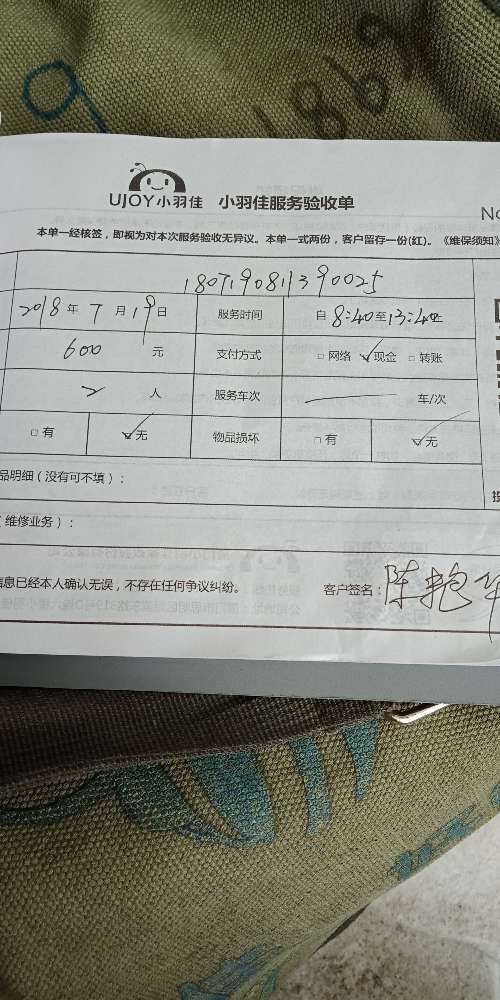 UJOY小羽佳 小羽佳服务验收单
No
本单一经核签，即视为对本次服务验收无异议。本单一式两份，客户留存一份(红)。《维保须知》
180719081390025
2018年7月19日 服务时间 自8:40至13:40
600元 支付方式 □网络 ☑现金 □转账
2人 服务车次 — 车/次
□有 ☑无 物品损坏 □有 ☑无
品明细（没有可不填）：
（维修业务）：
信息已经本人确认无误，不存在任何争议纠纷。 客户签名：陈艳华